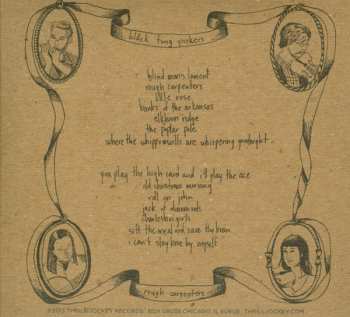 black twig pickers
blind man's lament
rough carpenters
little rose
banks of the arkansas
elkhorn ridge
the poplar pole
where the whippoorwills are whispering goodnight.
you play the high card and i'll play the ace
old christmas morning
roll on john
jack of diamonds
charleston girls
sift the meal and save the bran
i can't stay here by myself
rough carpenters
THRILL JOCKEY RECORDS
BOX 08038 CHICAGO IL 60608
THRILLJOCKEY.COM